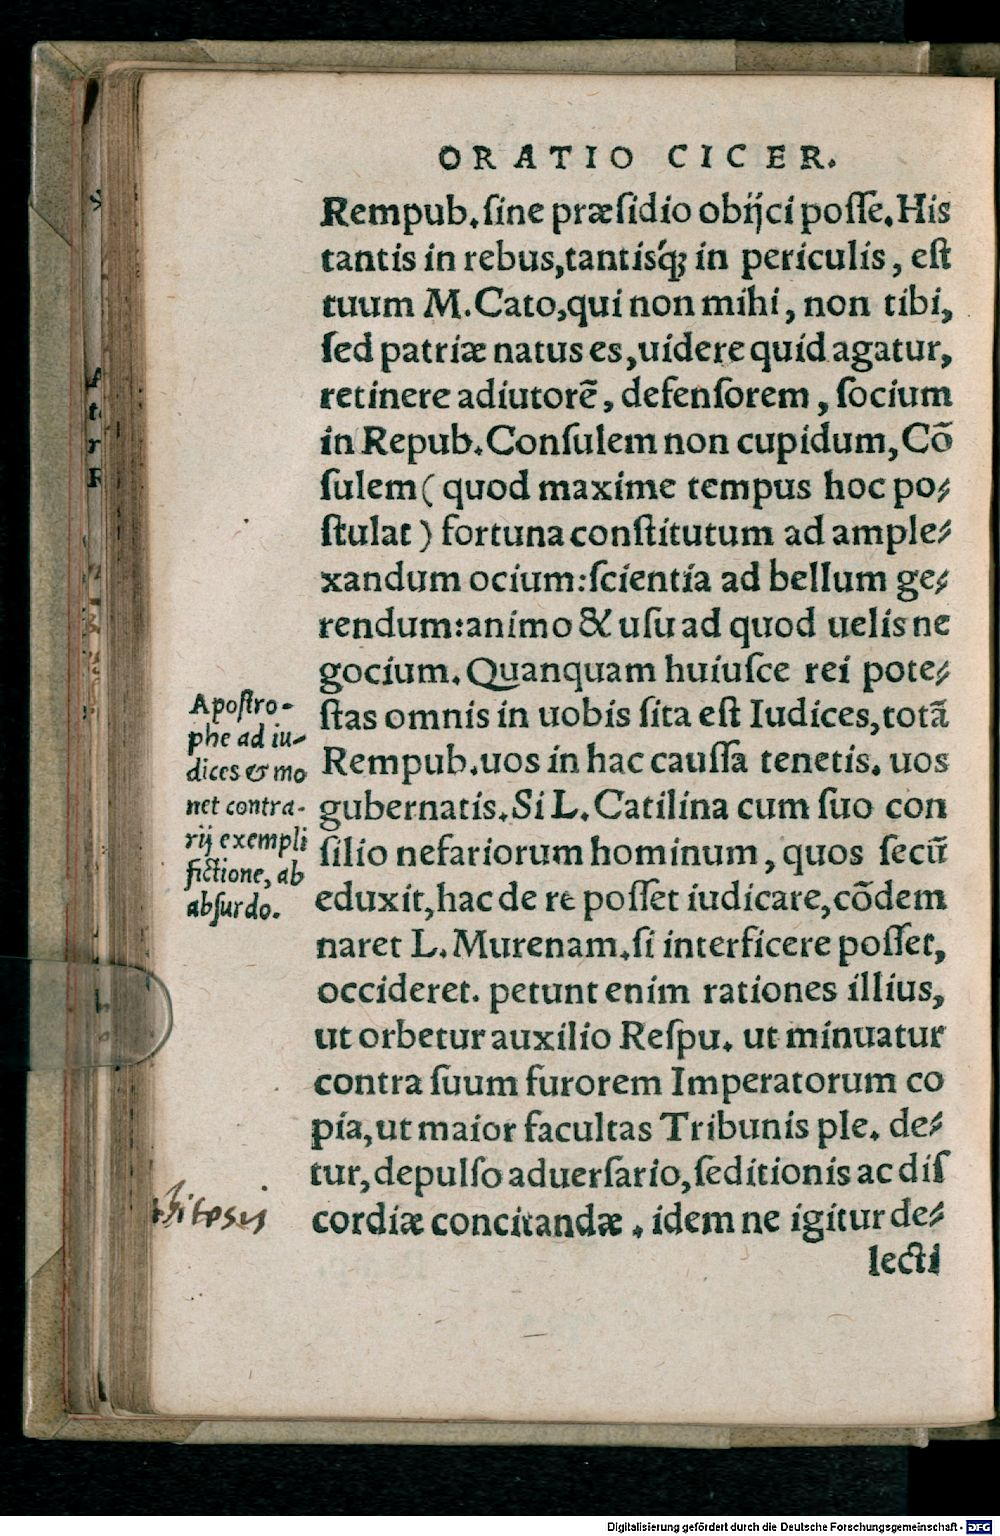 ORATIO CICER.
Rempub. ſine præſidio obijci poſſe. His
tantis in rebus, tantisq́; in periculis, eſt
tuum M. Cato, qui non mihi, non tibi,
ſed patriæ natus es, uidere quid agatur,
retinere adiutorē, defenſorem, ſocium
in Repub. Conſulem non cupidum, Cō
ſulem ( quod maxime tempus hoc po⸗
ſtulat ) fortuna conſtitutum ad ample⸗
xandum ocium: ſcientia ad bellum ge⸗
rendum: animo & uſu ad quod uelis ne
gocium. Quanquam huiuſce rei pote⸗
ſtas omnis in uobis ſita eſt Iudices, totā
Rempub. uos in hac cauſſa tenetis. uos
gubernatis. Si L. Catilina cum ſuo con
ſilio nefariorum hominum, quos ſecū
eduxit, hac de re poſſet iudicare, cōdem
naret L. Murenam. ſi interficere poſſet,
occideret. petunt enim rationes illius,
ut orbetur auxilio Reſpu. ut minuatur
contra ſuum furorem Imperatorum co
pia, ut maior facultas Tribunis ple. de⸗
tur, depulſo aduerſario, ſeditionis ac diſ
cordiæ concitandæ. idem ne igitur de⸗
lecti
Apoſtro-
phe ad iu-
dices & mo
net contra-
rij exempli
fictione, ab
abſurdo.
Digitalisierung gefördert durch die Deutsche Forschungsgemeinschaft - DFG